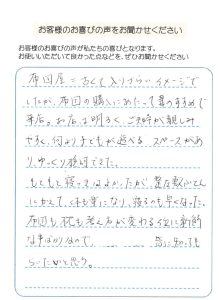 お客様のお喜びの声をお聞かせください
お客様のお喜びの声が私たちの喜びとなります。
お使いいただいて良かった点などを、ぜひお聞かせください
布団屋=おして入りづらいイメージで
したが、布団の購入にあたって妻のすすめで
来店。お店は明るく、ご夫婦が親しみ
やすく、何より子どもが遊べるスペースがあ
り、ゆっくり検討できた。
もともと寝つきはよかったが、整圧敷ふとん
にかえて、くせも楽になり、寝るのも早くなった。
布団も枕も考え方が変わる位に衝撃的
な事ばかりなので、
らいたいと思う。